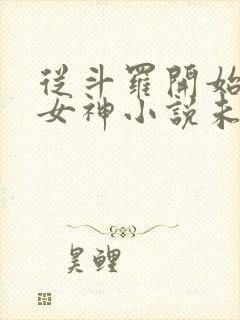 從斗羅開始
女神小說未
昊鯉